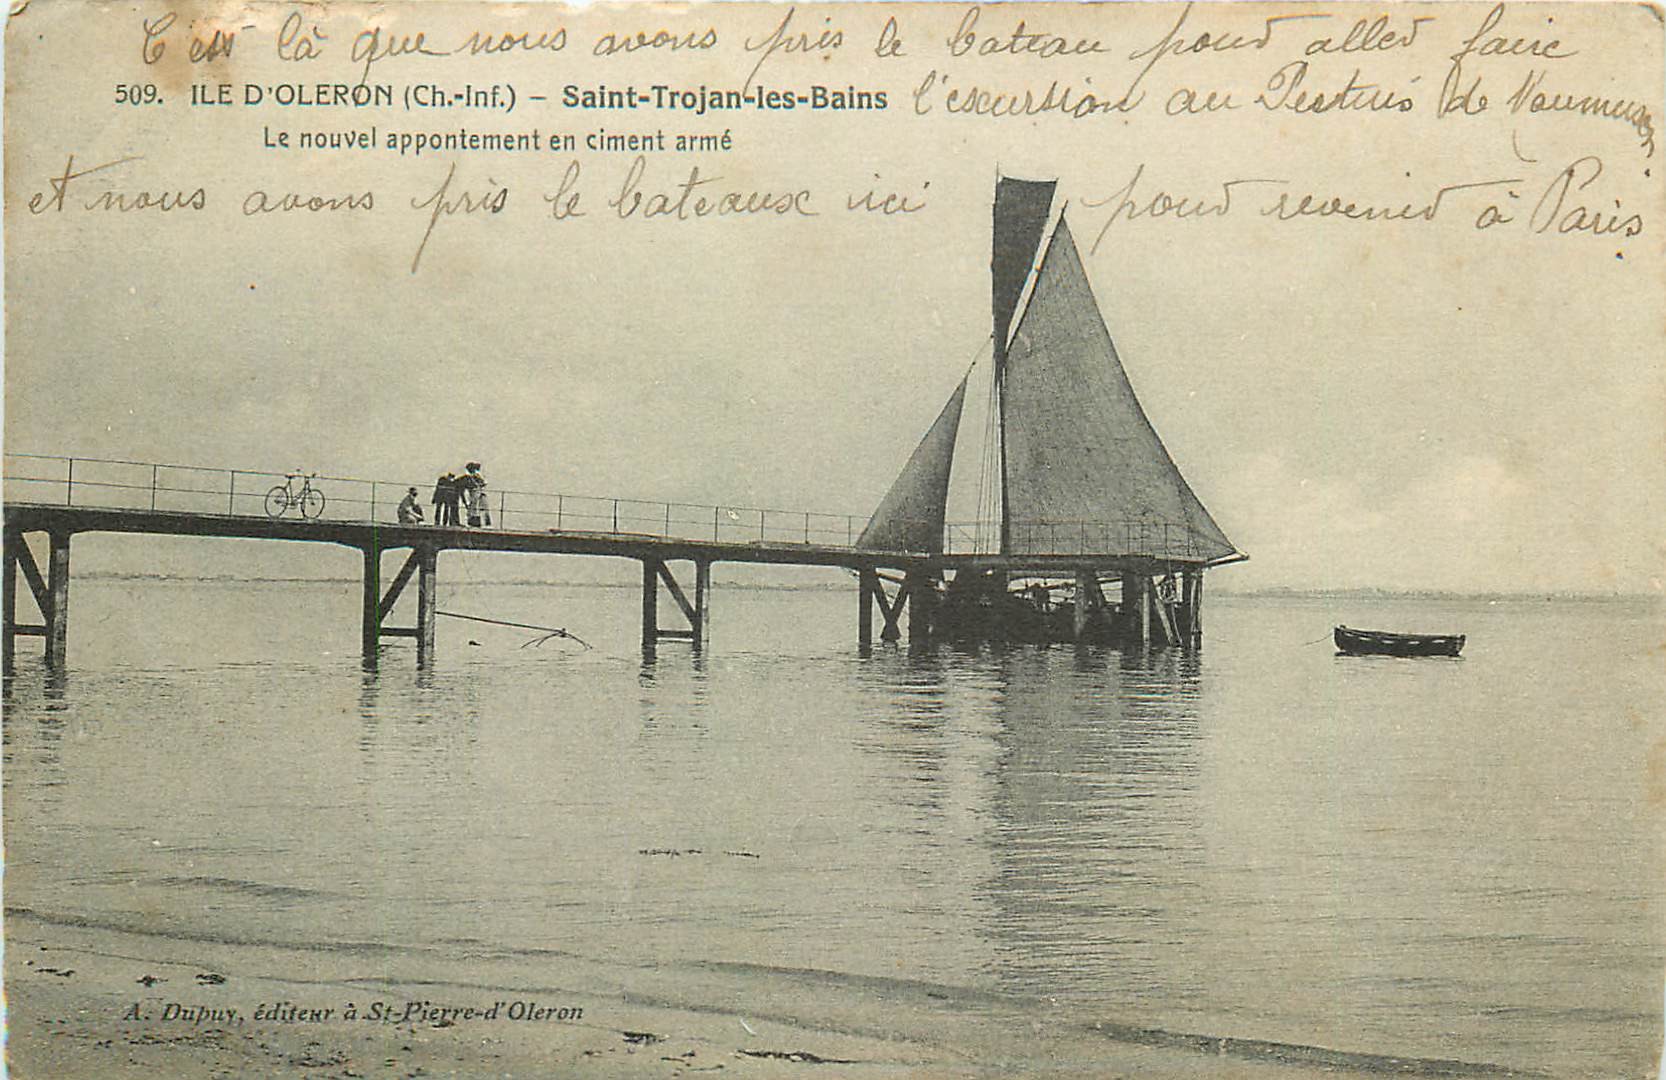 C'est là que nous avons pris le bateau pour aller faire
509. ILE D'OLERON (Ch.-Inf.) – Saint-Trojan-les-Bains
l'excursion au Pertuis de Maumusson
Le nouvel appontement en ciment armé
et nous avons pris le bateaux ici pour revenir à Paris
A. Dupuy, éditeur à St-Pierre-d'Oleron